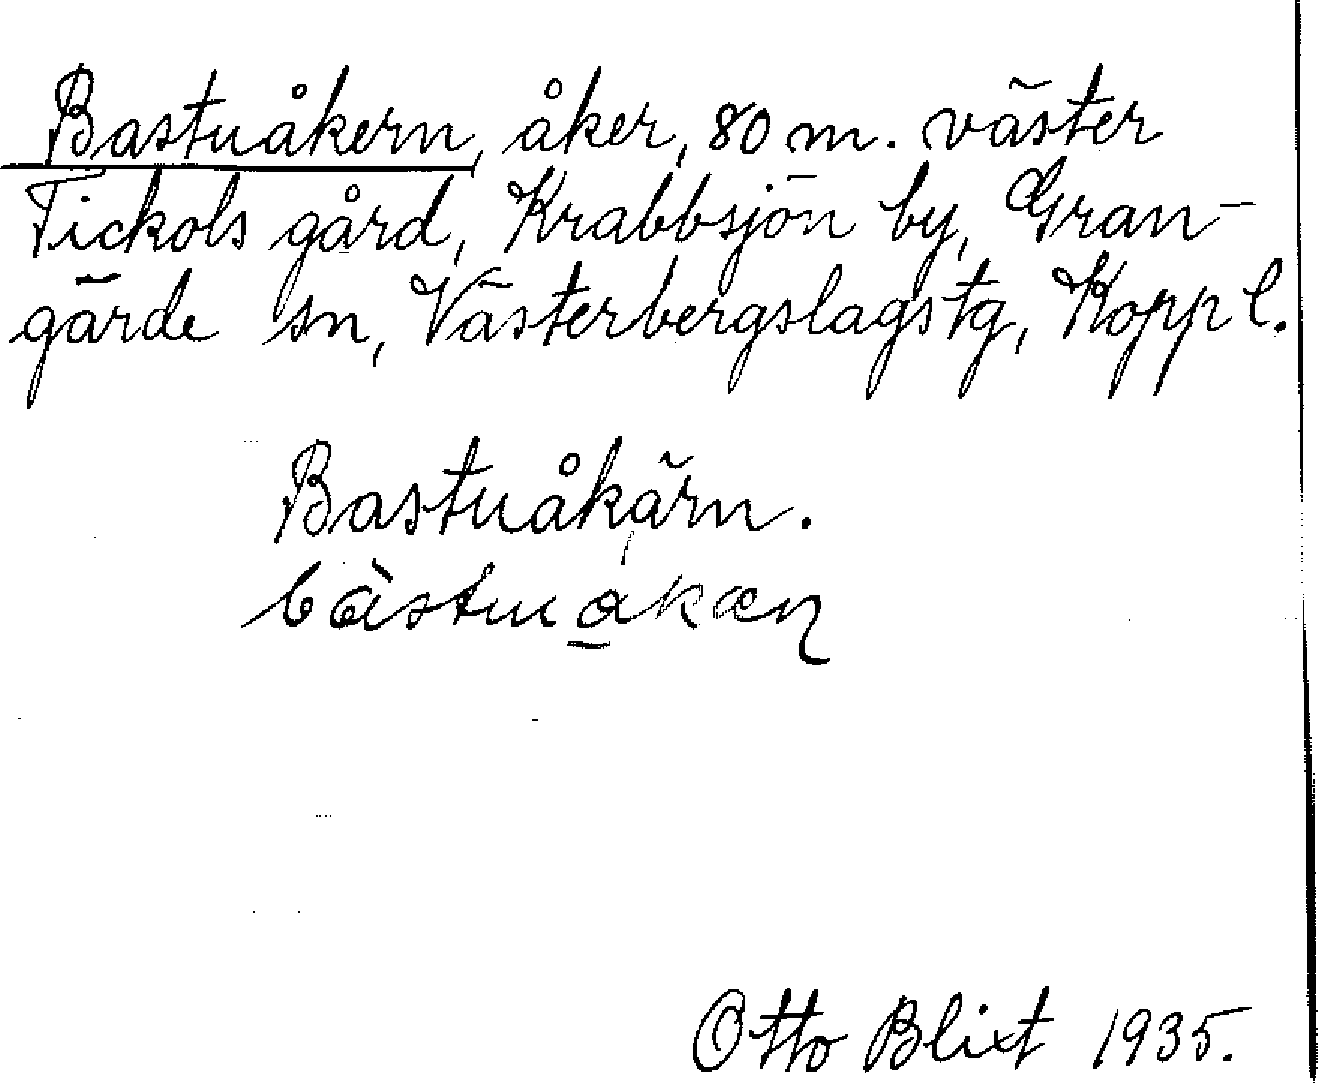 Bastuåkern, åker, 80 m. väster
Tickols gård, Krabbsjön by, Gran-
gärde sn, Västerbergslagstg, Kopp l.
Bastuåkärn.
Otto Blixt 1935.